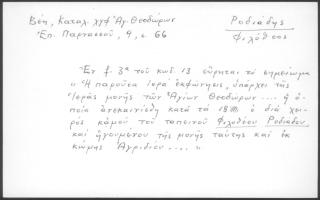 Βέη, Καταλ. χγφ Ἁγ. Θεοδώρων
Ἐπ. Παρνασσοῦ, 9, σ. 66
Ροδιάδης
Φιλόθεος
Ἐν f. 3α τοῦ κωδ. 13 εὕρηται τὸ σημείωμα
"Ἡ παροῦσα ἱερὰ ἐκφώνησις, ὑπάρχει τῆς
Ἱερᾶς μονῆς τῶν Ἁγίων Θεοδώρων .... ἡ ὁ-
ποία ἀνεκαινίσθη κατὰ τὸ ὁ διὰ χει-
ρὸς κἀμοῦ τοῦ ταπεινοῦ Φιλοθέου Ροδιάδου
καὶ ἡγουμένου τῆς μονῆς ταύτης καὶ ἐκ
κώμης Ἀγριδίου .... "